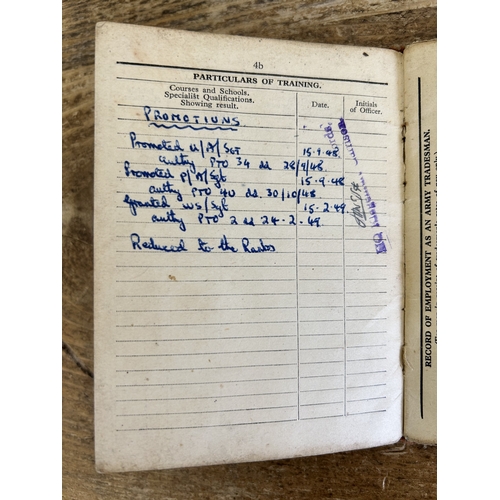 4b
PARTICULARS OF TRAINING.
Courses and Schools. Date. Initials
Specialist Qualifications. of Officer.
Showing result.
PROMOTIONS
Promoted U/A/Sgt 15.9.48.
authy PTO 34 dd 28/9/48.
Promoted P/A/Sgt 15.9.48
authy PTO 40 dd. 30/10/48
Granted WS/Sgt 15.2.49
authy PTO 2 dd 24-2-49.
Reduced to the Ranks
RECORD OF EMPLOYMENT AS AN ARMY TRADESMAN.